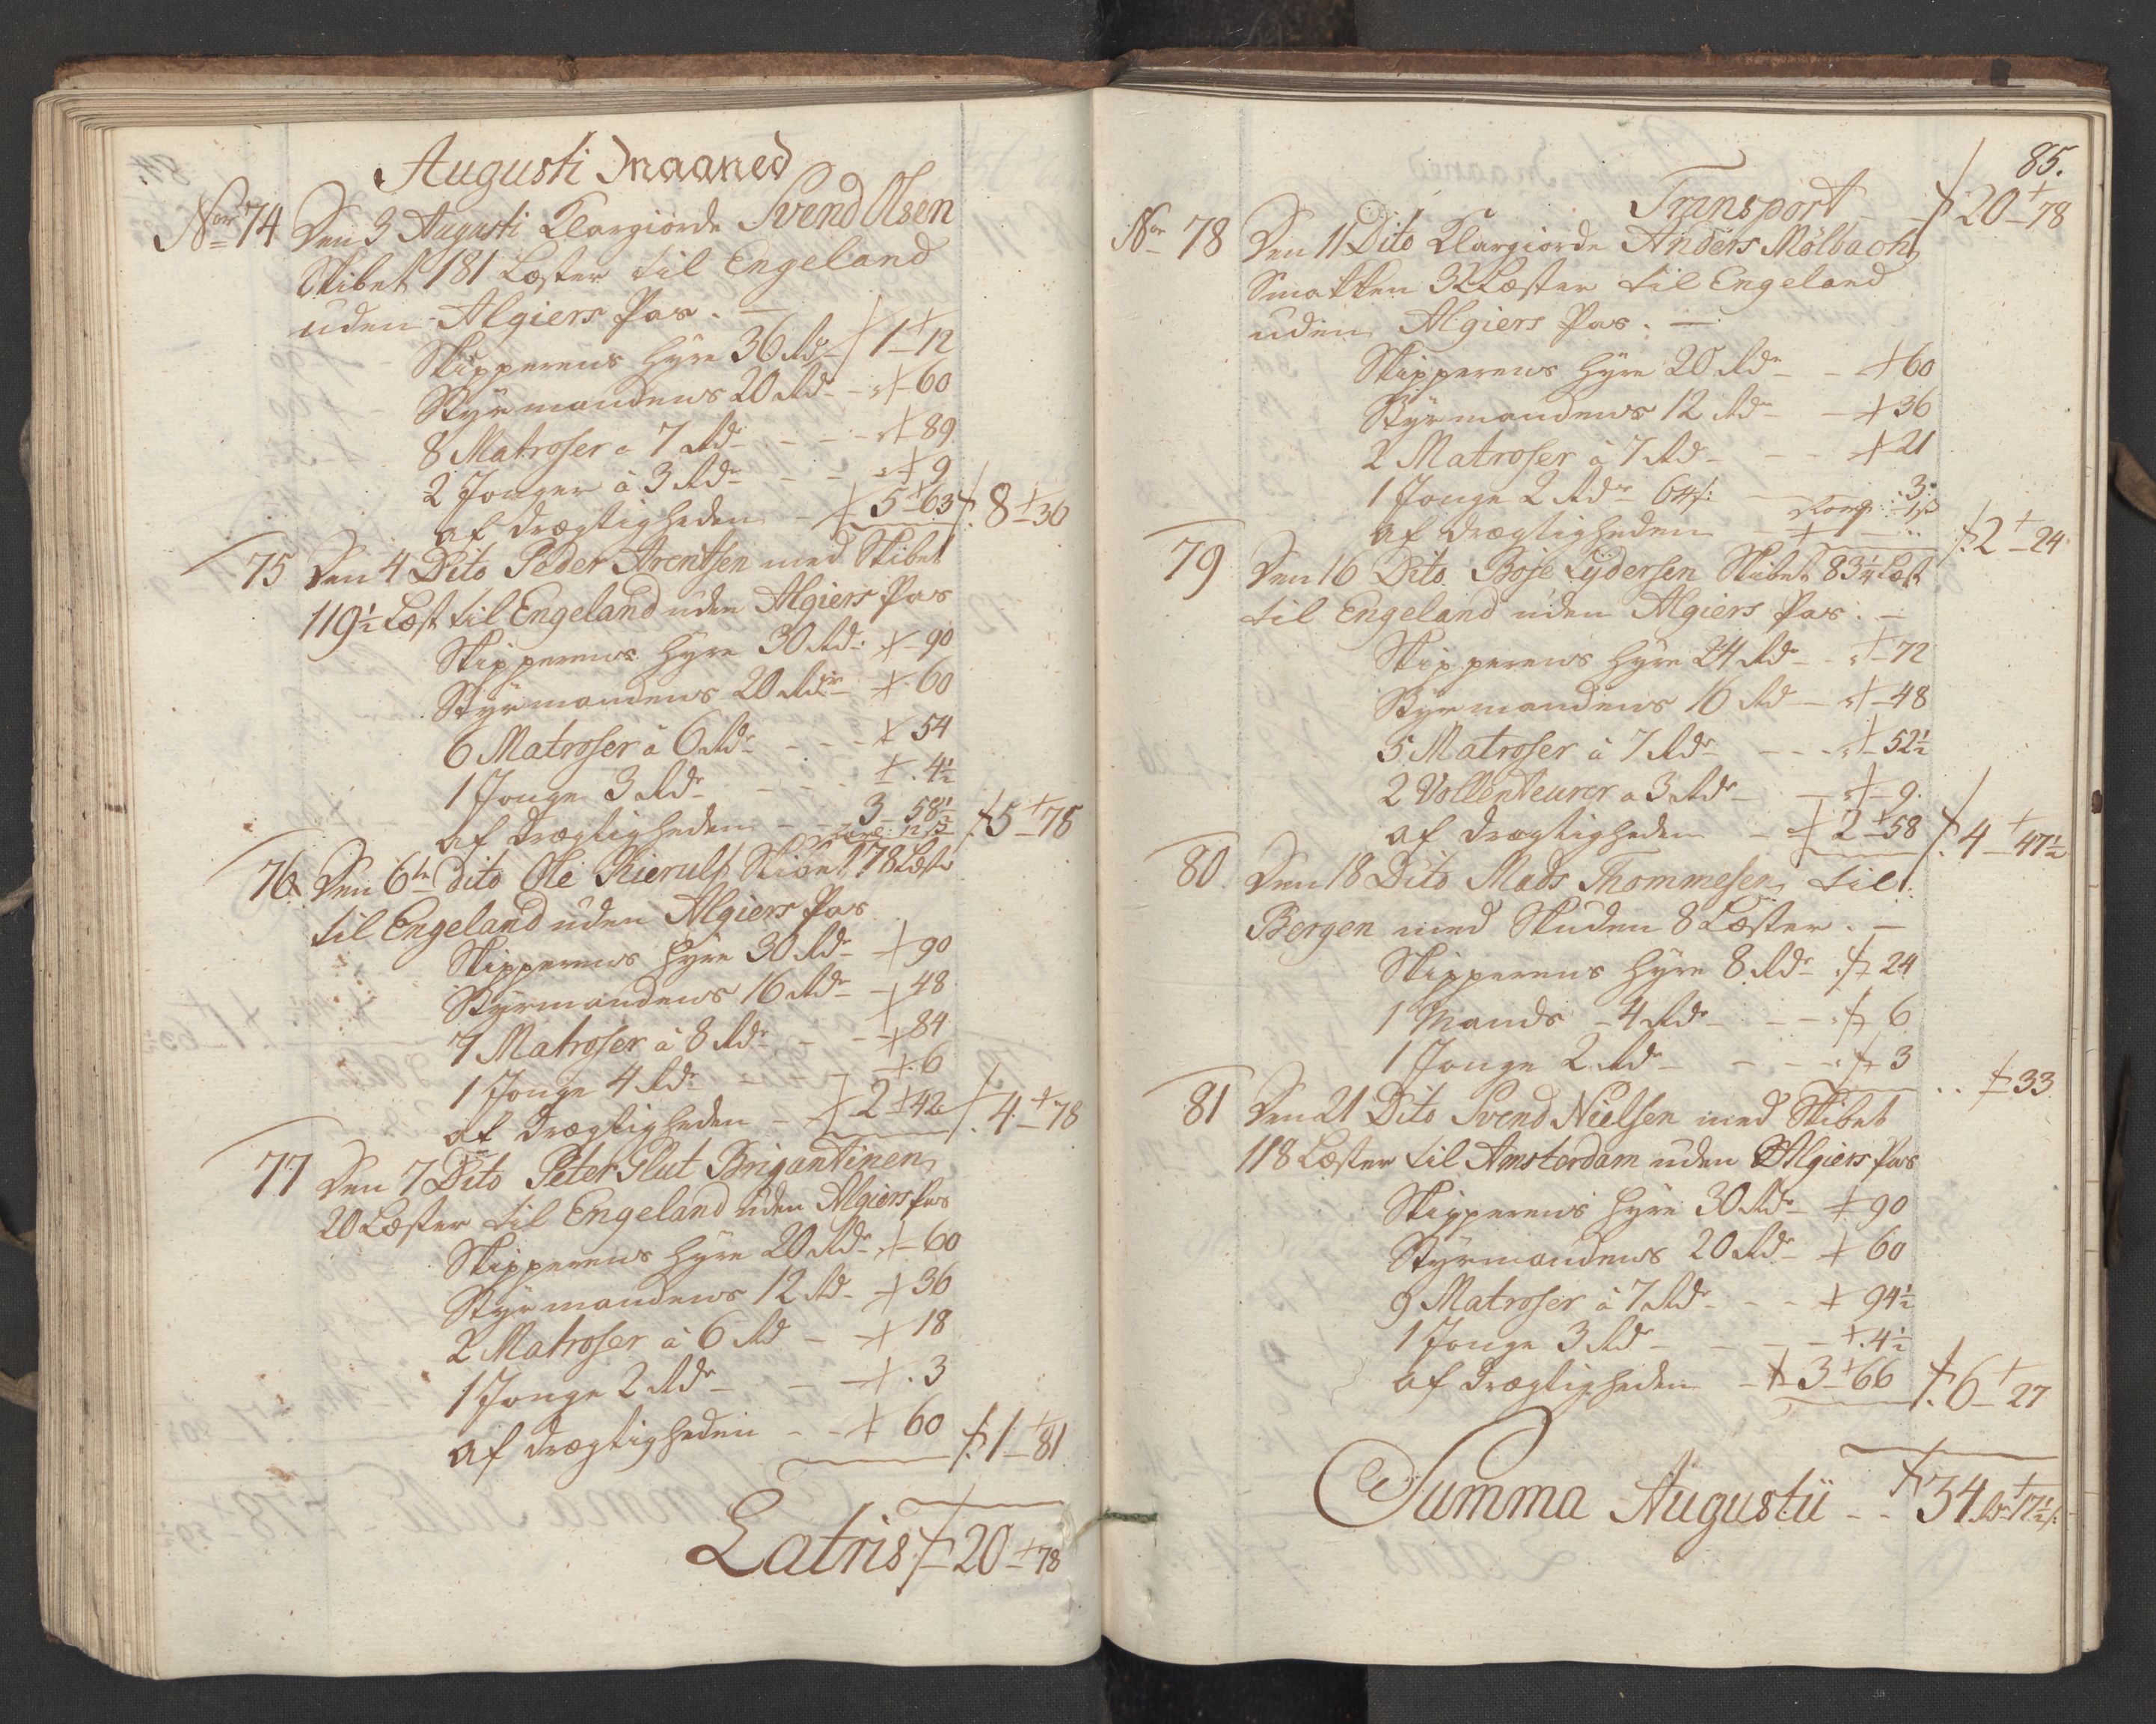 Augusti Maaned
No 74 Den 3 Augusti Klargiorde Svend Olsen
Skibet 181 Læster til Engeland
uden Algiers Pas. —
Skipperens Hyre 36 Rdr 1 - 12
Styrmandens 20 Rd - 60
8 Matroser a 7 Rdr - - - 89
2 Jonger à 3 Rdr - - 9
af Drægtigheden - 5 - 63 8 - 36
75 Den 4 Dito Peder Arentsen med Skibet
119½ Læst til Engeland uden Algiers Pas
Skipperens Hyre 30 Rd: 90
Styrmandens 20 Rdr 60
6 Matroser à 6 Rdr - - - 54
1 Jonge 3 Rdr - - - 4½
af Drægtigheden - 3 - 58½ 5 - 78
76 Den 6te dito Ole Kierulf Skibet 78 Læster
til Engeland uden Algiers Pas
Skipperens Hyre 30 Rdr 90
Styrmandens 16 Rdr - 48
7 Matroser à 8 Rdr - - - 84
1 Jonge 4 Rdr - - - 6
af Drægtigheden - 2 - 42 4 - 78
77 Den 7 Dito Peter Slut Brigantinen
20 Læster til Engeland uden Algiers Pas
Skipperens Hyre 20 Rdr - 60
Styrmandens 12 Rd - 36
2 Matroser à 6 Rd - 18
1 Jonge 2 Rdr - - 3
af Drægtigheden - - 60 1 - 81
Latris 20 - 78
85.
Transport - 20 - 78
No 78 Den 11 Dito Klargiorde Anders Mölbach
Smakken 32 Læster til Engeland
uden Algiers Pas. —
Skipperens Hyre 20 Rdr - - 60
Styrmandens 12 Rdr - 36
2 Matroser à 7 Rd - - - 21
1 Jonge 2 Rdr 64 s: 3
af Drægtigheden 1 - 2 - 24
79 Den 16 Dito Boje Lydersen Skibet 83¼ Læst
til Engeland uden Algiers Pas. —
Skipperens Hyre 24 Rdr - - 72
Styrmandens 16 Rd - - 48
5 Matroser à 7 Rdr - - - 52½
2 Vollenteurer a 3 Rdr - - 9.
af Drægtigheden - 2 - 58 4 - 47½
80 Den 18 Dito Mads Thommesen til
Bergen med Skuden 8 Læster. —
Skipperens Hyre 8 Rdr 24
1 Mands - 4 Rdr - - - 6
1 Jonge 2 Rd - - - 3 33
81 Den 21 Dito Svend Nielsen med Skibet
118 Læster til Amsterdam uden Algiers Pas
Skipperens Hyre 30 Rdr - 90
Styrmandens 20 Rdr 60
9 Matroser à 7 Rdr - - - 94½
1 Jonge 3 Rd - - - 4½
af Drægtigheden - 3 - 66 6 - 27
Summa Augustii - - 34 Rdr 17½ s: